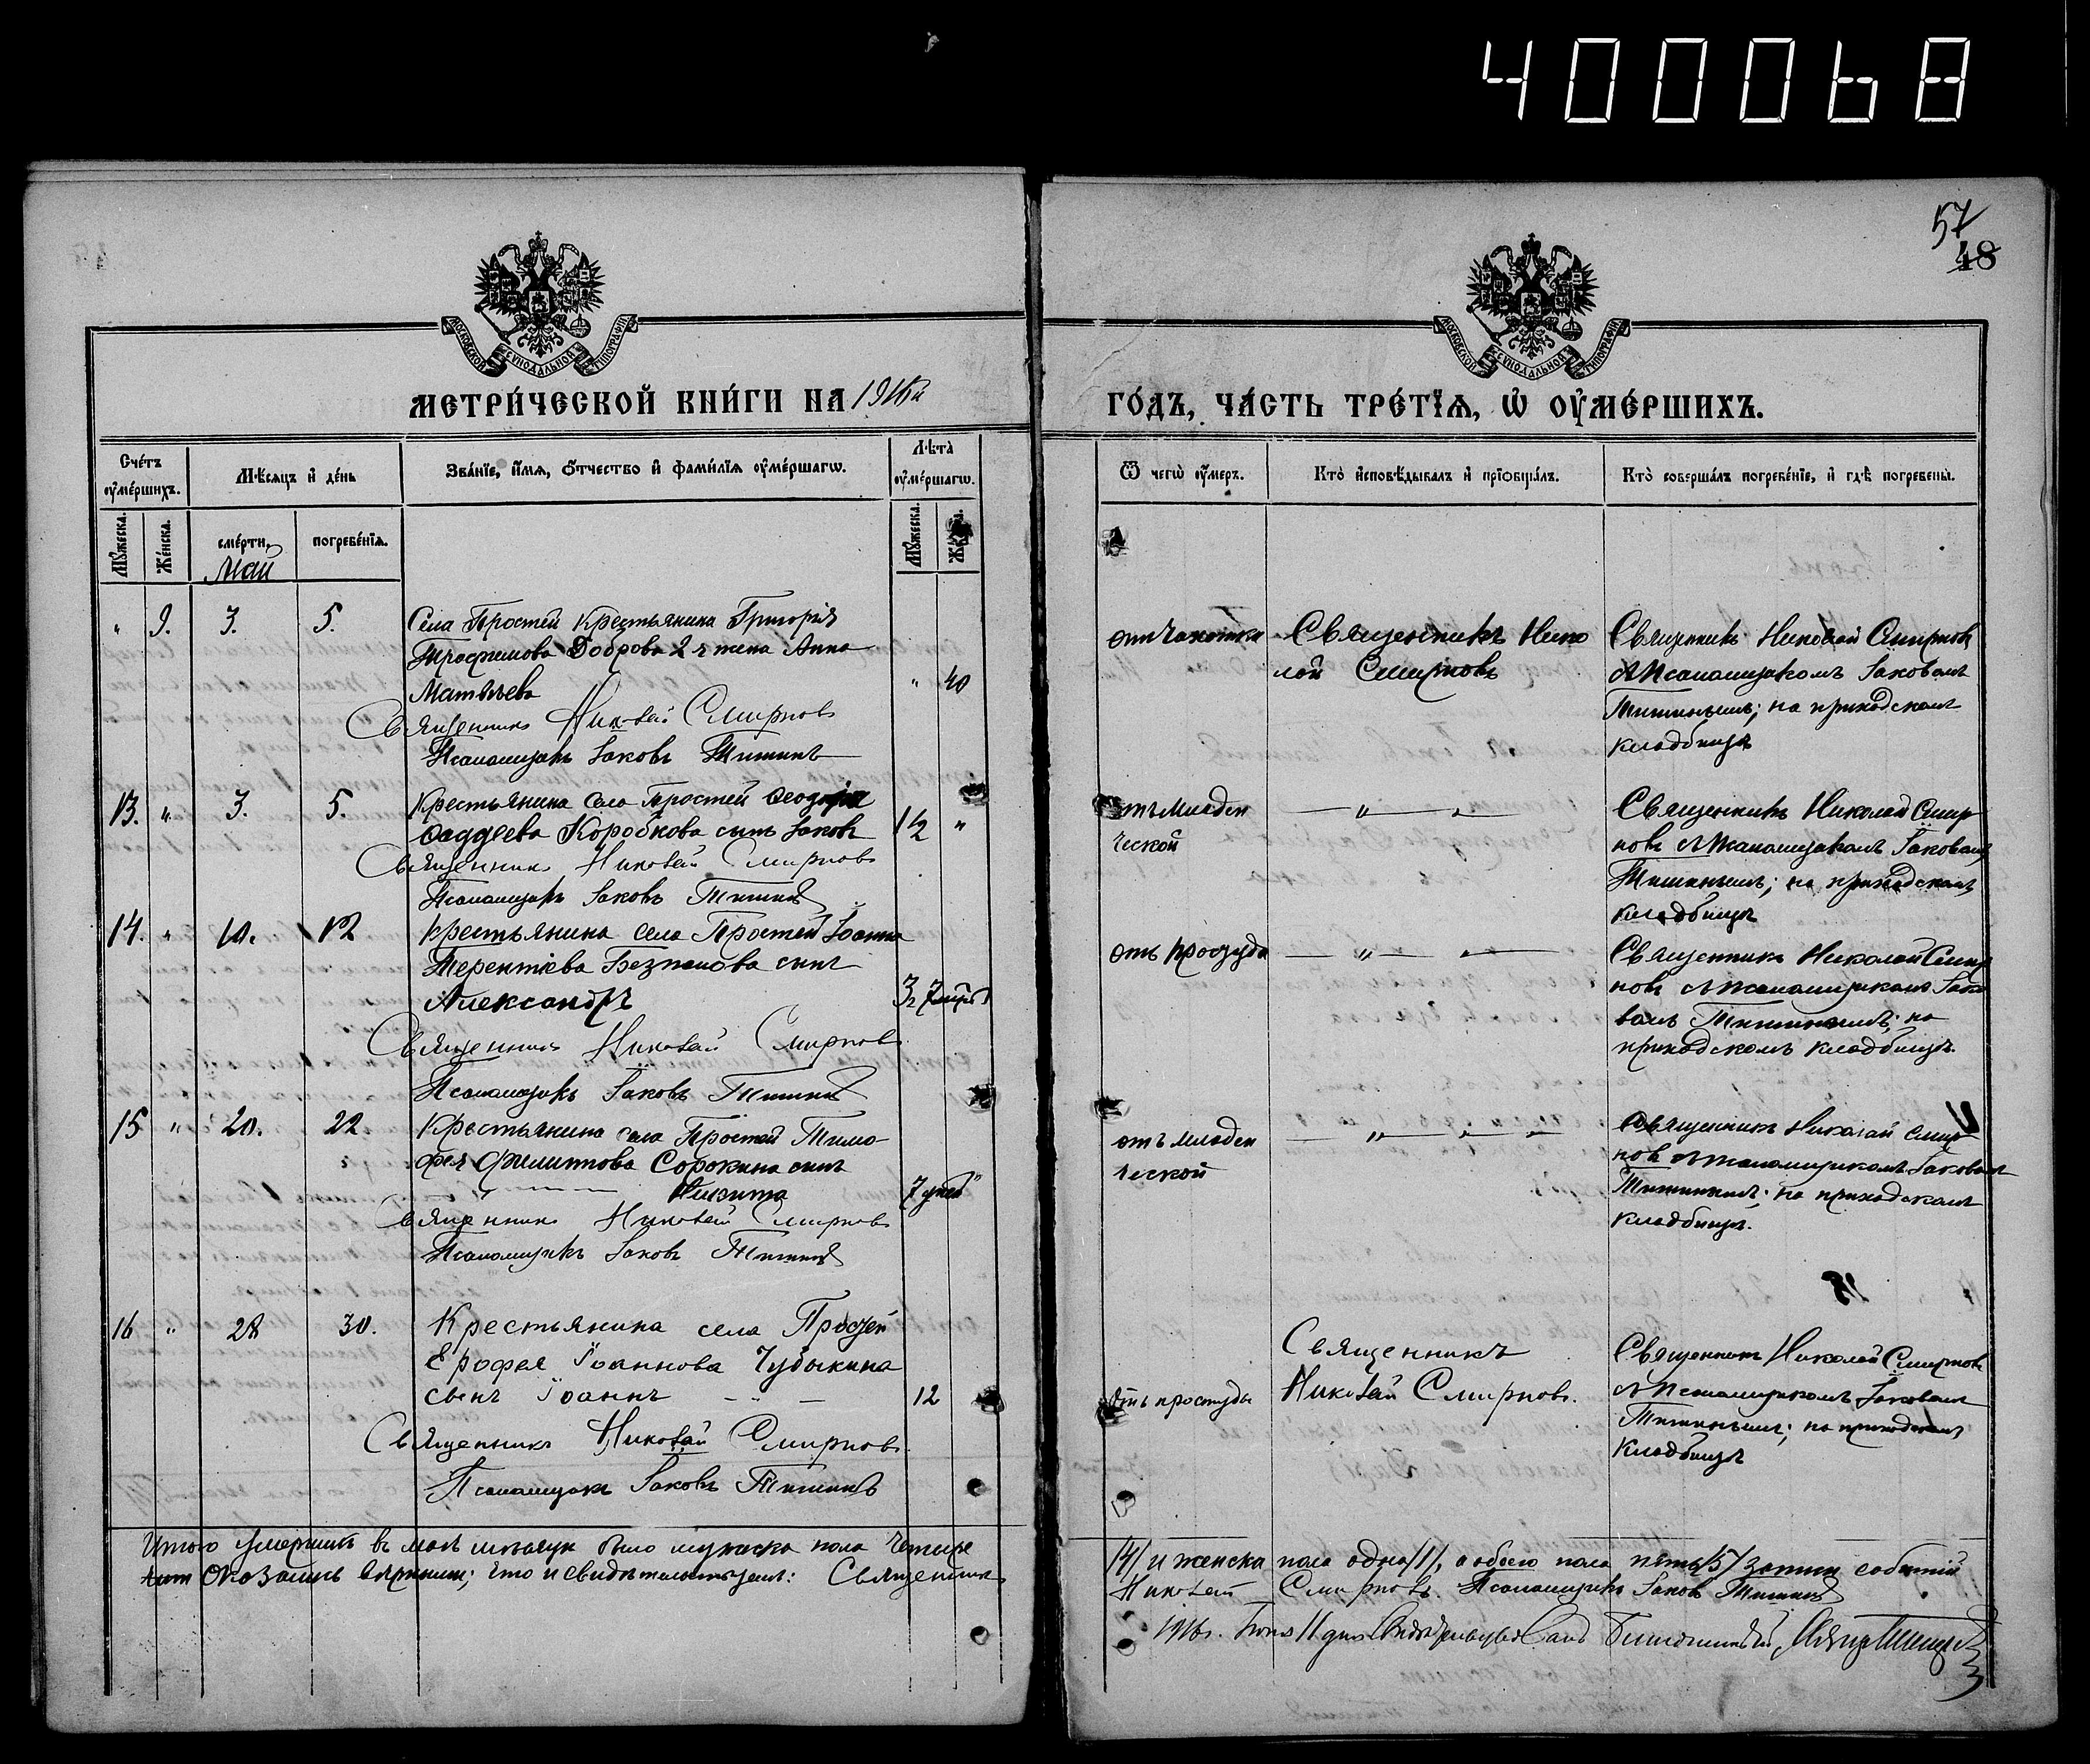 400068
57
48
МОСКОВСКОЙ СѴНОДАЛЬНОЙ ТИПОГРАФІИ
МОСКОВСКОЙ СѴНОДАЛЬНОЙ ТИПОГРАФІИ
МЕТРИ́ЧЕСКОЙ КНИ́ГИ НА 1916й
ГО́ДЪ, ЧА́СТЬ ТРЕ́ТЇѦ, Ѡ҆ ОУ҆МЕ́РШИХЪ.
Сче́тъ оу҆ме́ршихъ.
Мѣ́сяцъ и҆ де́нь
Зва́нїе, и҆́мѧ, ѻ҆́тчество и҆ фами́лїѧ оу҆ме́ршагѡ.
Лѣ́та оу҆ме́ршагѡ.
Ѿ чегѡ̀ оу҆́меръ.
Кто̀ и҆сповѣ́дывалъ и҆ прїѡбща́лъ.
Кто̀ соверша́лъ погребе́нїе, и҆ гдѣ̀ погребены̀.
Мꙋ́жеска.
Же́нска.
сме́рти.
погребе́нїѧ.
Мꙋ́жеска.
Май
" 9. 3. 5. Села Простей Крестьянина Григорія
Трофимова Доброва 2я жена Анна
Матвѣева " 40
Священникъ Николай Смирновъ
Псаломщикъ Іаковъ Тишинъ
отъ чахотки
Священникъ Нико
лай Смирновъ
Священникъ Николай Смирновъ
съ Псаломщикомъ Іаковомъ
Тишинымъ; на приходскомъ
кладбищѣ
13. " 3. 5. Крестьянина села Простей Ѳеодора
Ѳаддеева Коробкова сынъ Іаковъ 1½ "
Священникъ Николай Смирновъ
Псаломщикъ Іаковъ Тишинъ
отъ младен
ческой
— " — " —
Священникъ Николай Смир
новъ съ Псаломщикомъ Іаковомъ
Тишинымъ; на приходскомъ
кладбищѣ
14. " 10. 12 Крестьянина села Простей Іоанна
Терентіева сынъ
Александръ
Священникъ Николай Смирновъ
Псаломщикъ Іаковъ Тишинъ
отъ простуды
— " — " —
Священникъ Николай Смир
новъ съ Псаломщикомъ Іако
вомъ Тишинымъ; на
приходскомъ кладбищѣ.
15 " 20. 22 Крестьянина села Простей Тимо-
фея Филиппова Сорокина сынъ
Никита 7 дней "
Священникъ Николай Смирновъ
Псаломщикъ Іаковъ Тишинъ
отъ младен
ческой
— " — " — " —
Священникъ Николай Смир
новъ съ Псаломщикомъ Іаковомъ
Тишинымъ; на приходскомъ
кладбищѣ.
16 " 28 30. Крестьянина села Простей
Ерофея Іоаннова Чубыкина
сынъ Іоаннъ 12
Священникъ Николай Смирновъ
Псаломщикъ Іаковъ Тишинъ
отъ простуды
Священникъ
Николай Смирновъ.
Священникъ Николай Смирновъ
съ Псаломщикомъ Іаковомъ
Тишинымъ; на приходскомъ
кладбищѣ
Итого умершихъ въ маѣ мѣсяцѣ было мужеска пола четыре
/4/ и женска пола одна /1/, а обоего пола пять /5/ записи событій
оказались вѣрными; что и свидѣтельствуемъ: Священникъ
Николай Смирновъ. Псаломщикъ Іаковъ Тишинъ
1916г. Іюня 11 дня